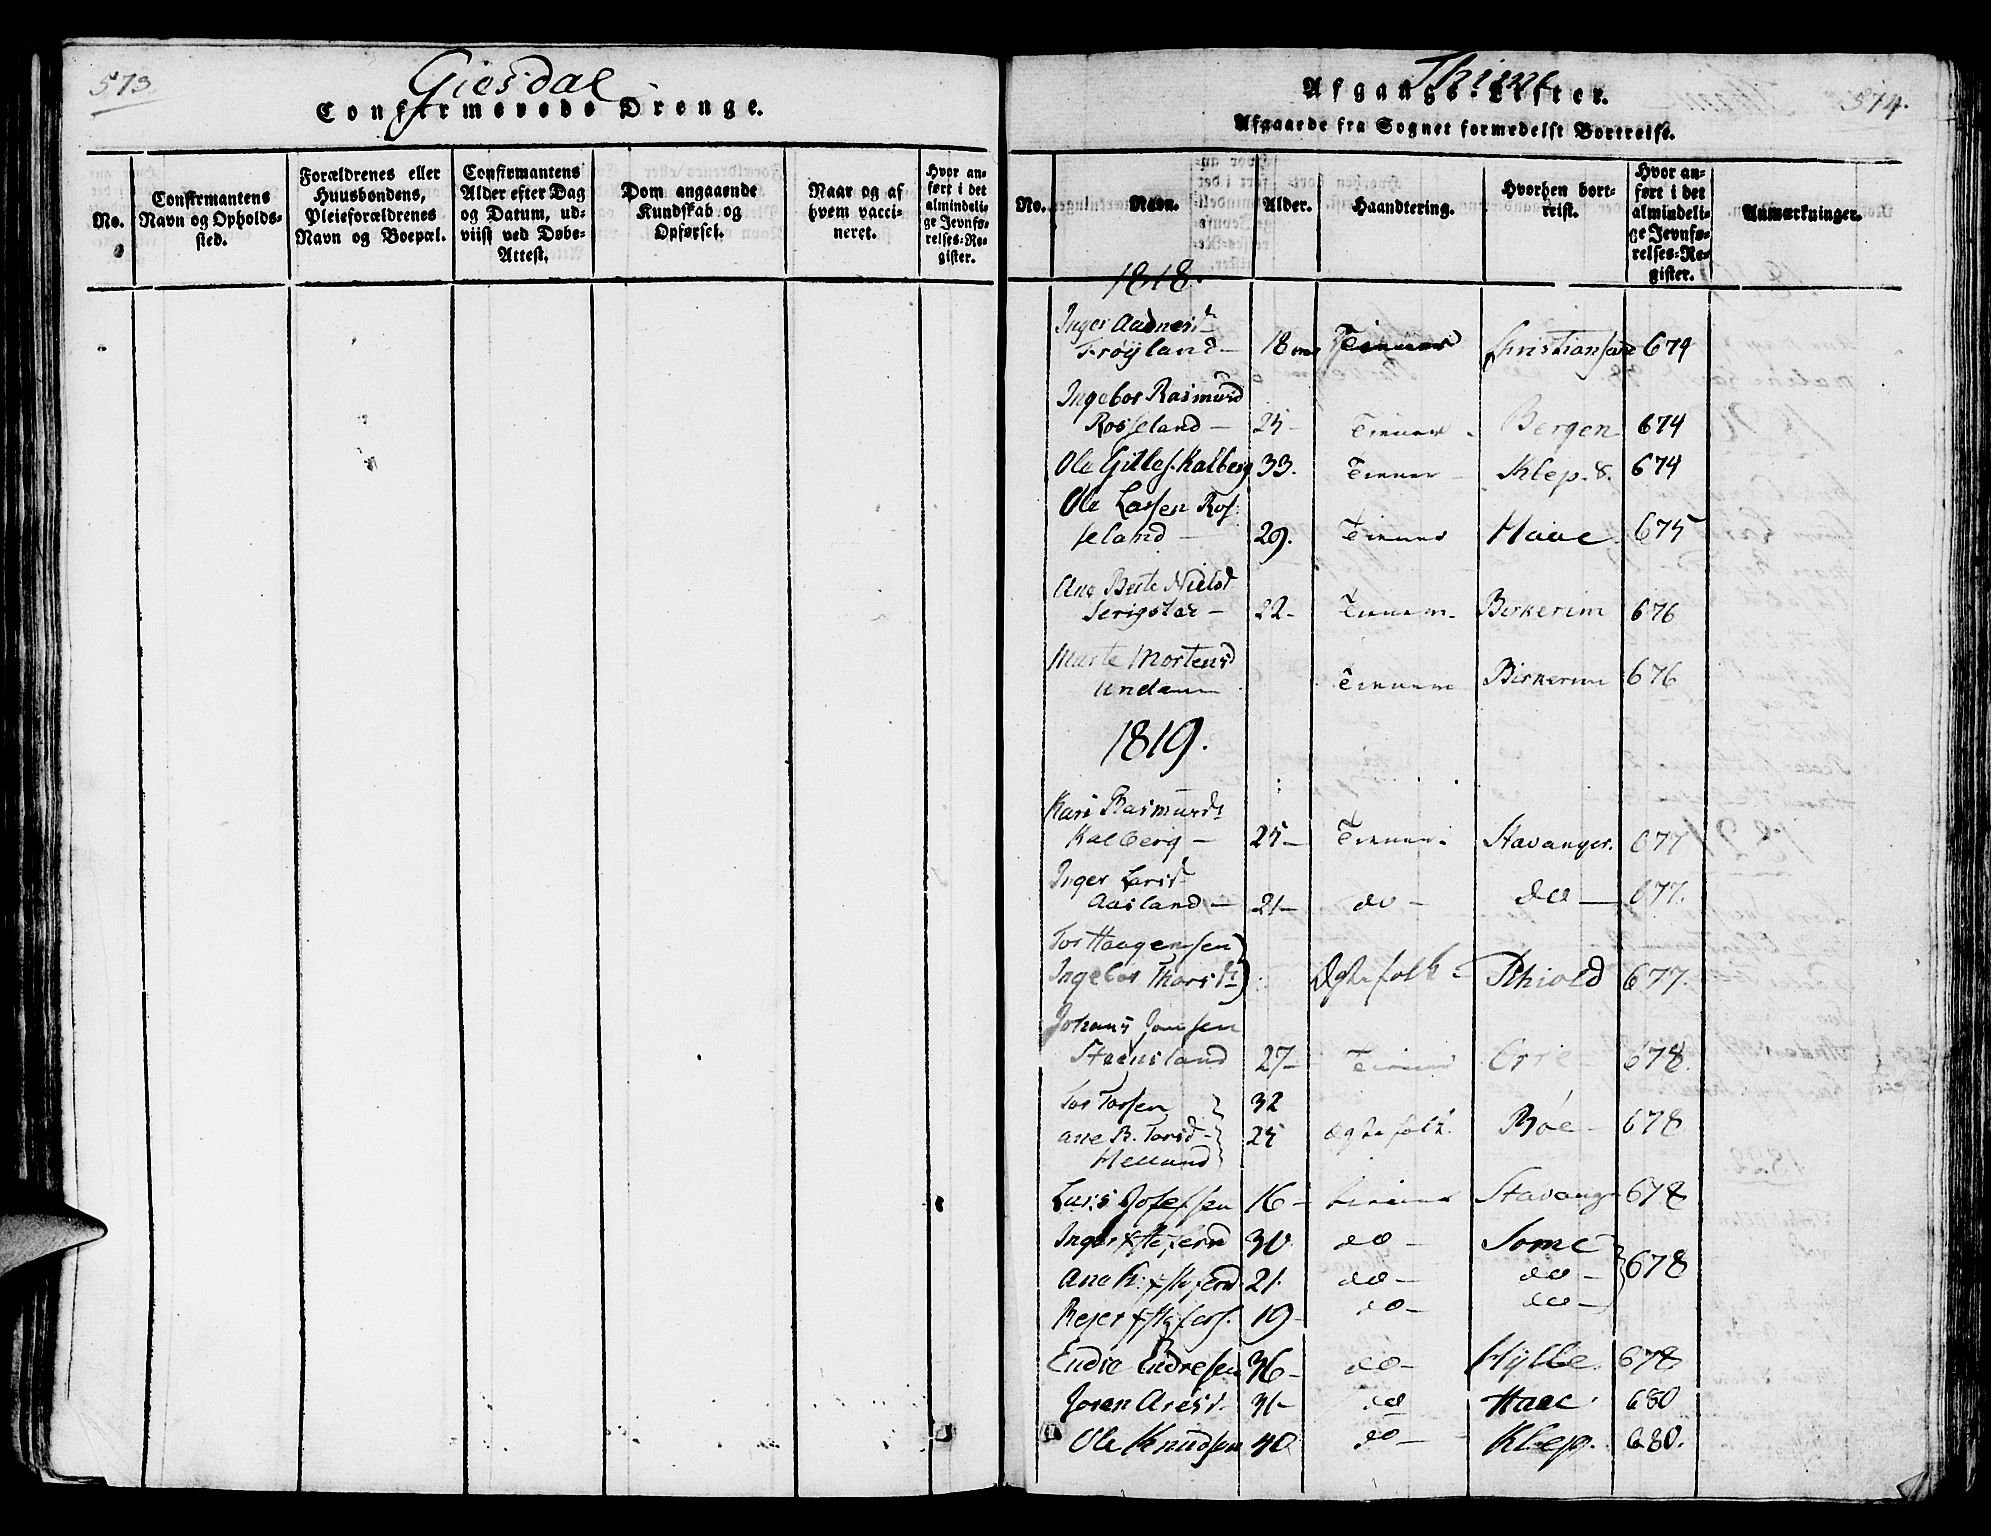 573.
Giesdal
Confirmerede Drenge.
No.
Confirmantens Navn og Opholds-sted.
Forældrenes eller Huusbondens, Pleieforældrenes Navn og Boepæl.
Confirmantens Alder efter Dag og Datum, ud-viist ved Døbe-Attest.
Dom angaaende Kundskab og Opførsel.
Naar og af hvem vacci-neret.
Hvor an-ført i det almindeli-ge Jevnfø-relses-Re-gister.
Thime
574.
Afgangs-Lister.
Afgaaede fra Sognet formedelst Bortreise.
No.
Navn.
Alder.
Haandtering.
Hvorhen bort-reist.
Hvor an-ført i det almindeli-ge Jevnfø-relses-Re-gister.
Anmærkninger.
1818.
Inger Aadnesd
Frøyland — 18 Tienner Christiansand 674
Ingebor Rasmusd
Rosseland — 25 — Tienner Bergen 674
Ole Gitles. Kalberg 33. Tienner Klep. 674
Ole Larsen Ros-
seland — 29. Tienner Haae. 675
Ane Berte Nielsd
Serigstad — 22 — Tienner Birkerim 676
Marte Mortensd
Undem Tienner Birkerim 676
1819.
Kari Rasmusd
Kalberg — 25 — Tienner Stavanger. 677
Inger Larsd
Aasland — 21 — do — do — 677.
Tor Haagensen
Ingebor Thorsd Ægtefolk Schiold 677.
Johans Jonssen
Steensland 27 — Tienner Orre — 678.
Tor Torsen 32
Ane B. Torsd — 25 Ægtefolk. Bøe — 678
Helland
Lars Josefsen 16 — Tienner Stavang 678
Inger 30 do — Some
Ane K. 21. do — do — 678
Rejer 19 — do — do —
Endre Endresen 36 — do — Hylle. 678
Joren Aresd. 31 — do Haae 680
Ole Knudsen 40 do — Klep. 680.